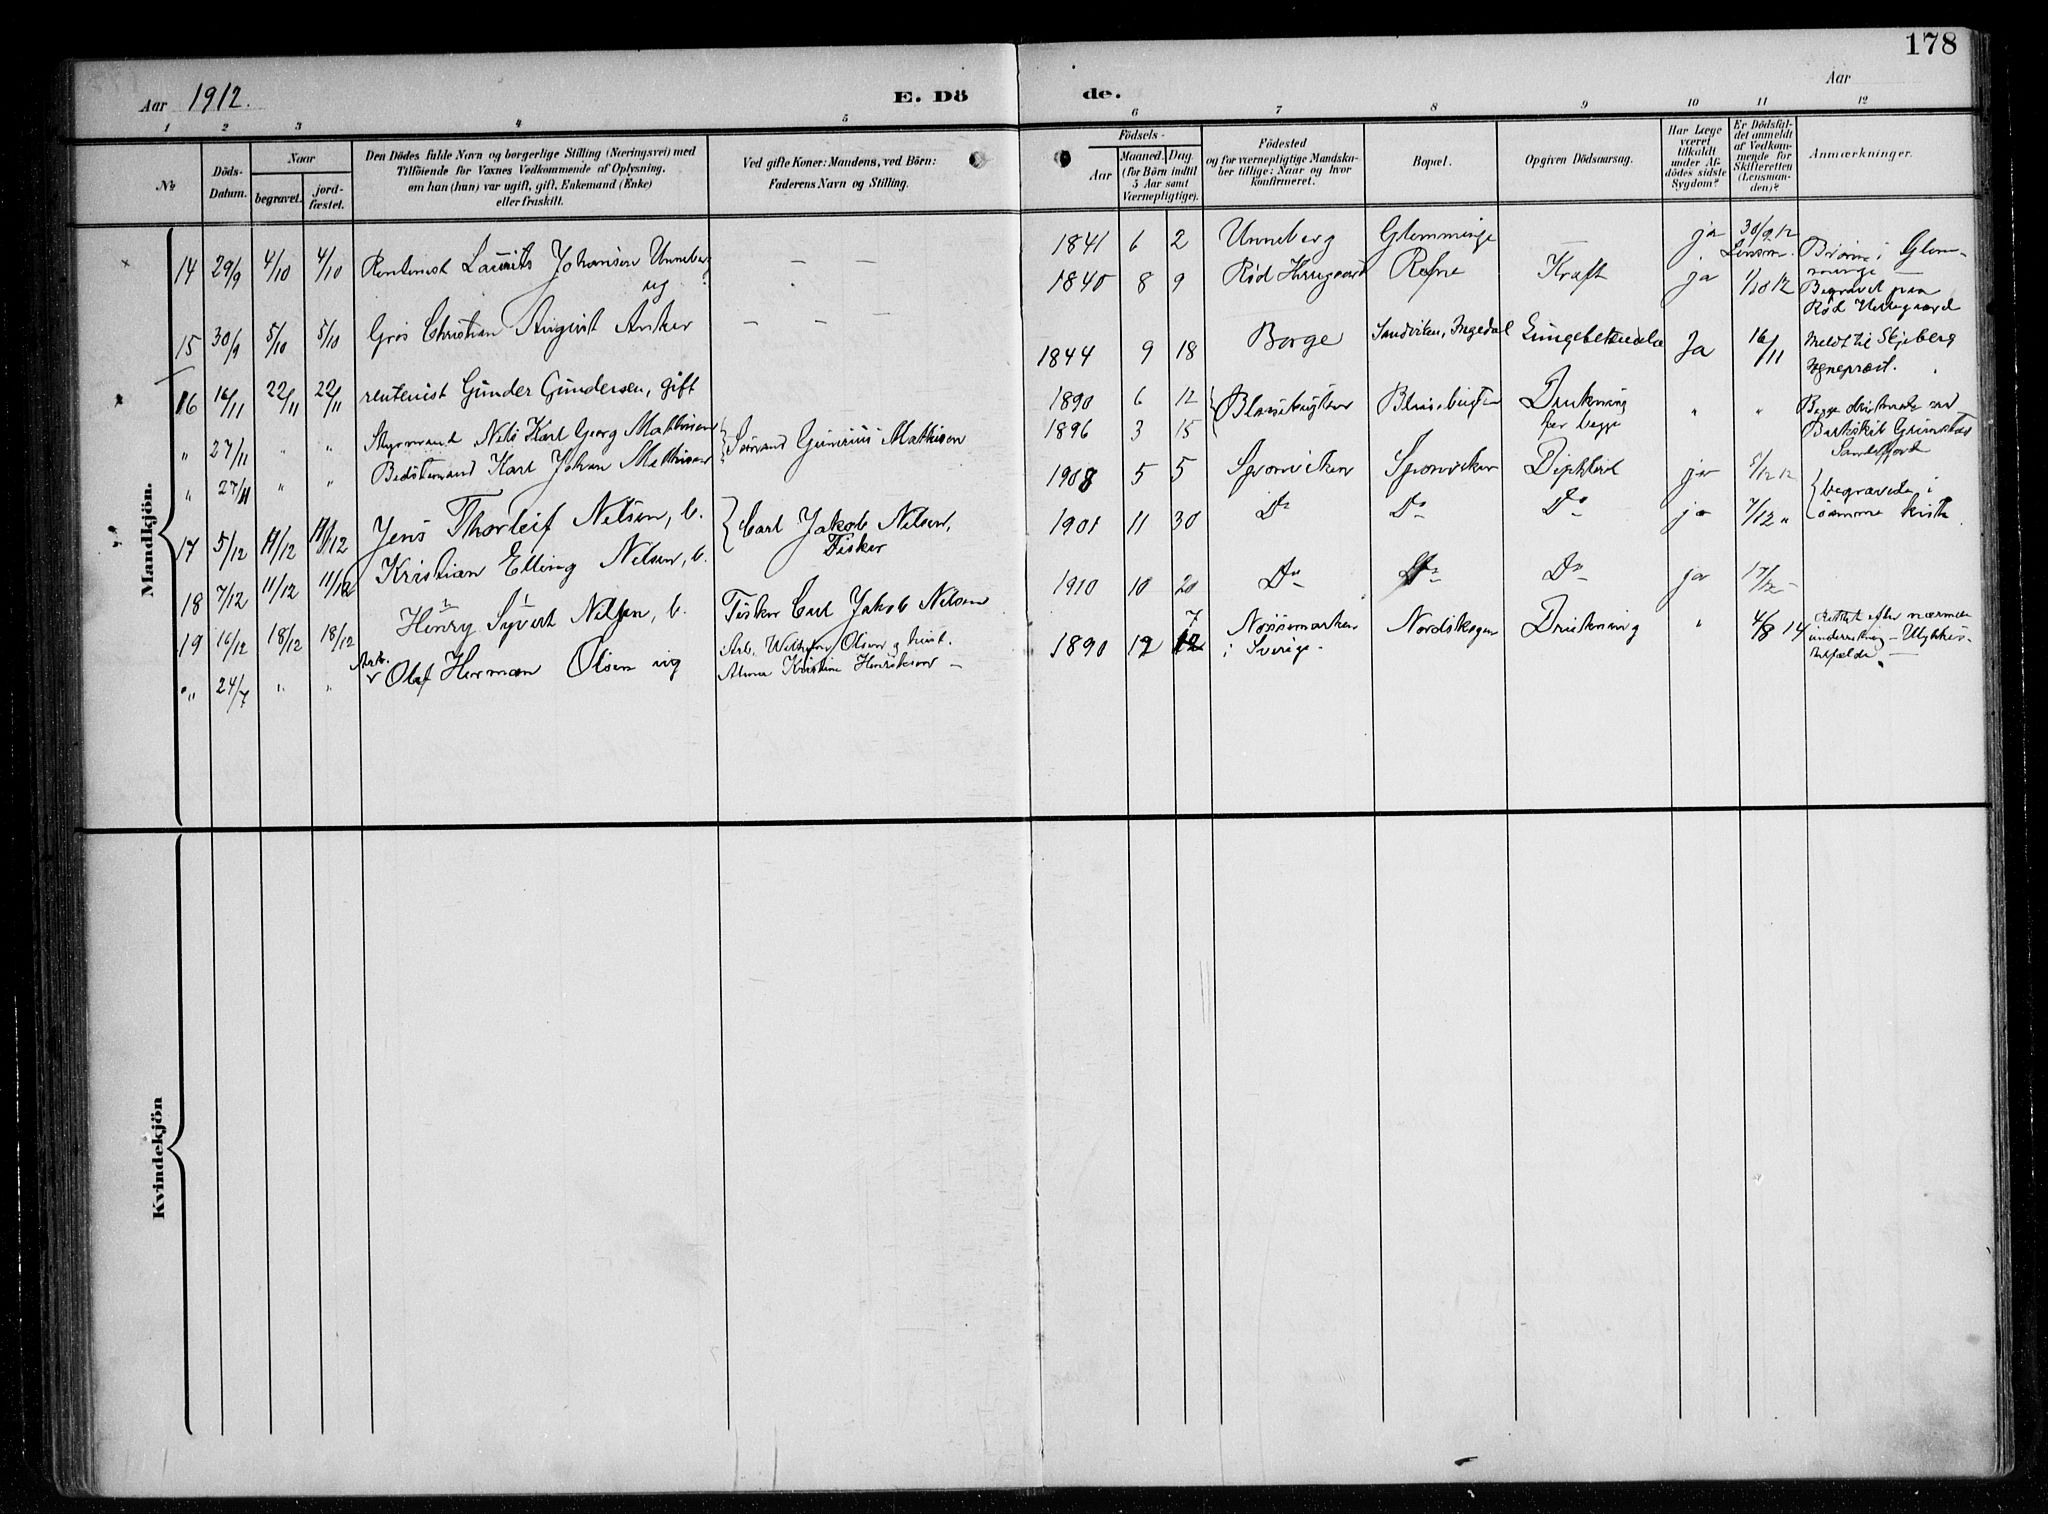 178
Aar 1912.
E. Dö
de.
Aar
1 2 3 4 5
6 7 8 9 10 11 12
Nr
Döds-
Datum.
Naar
begravet.
jord-
fæstet.
Den Dödes fulde Navn og borgerlige Stilling (Næringsvei) med
Tilföiende for Voxnes Vedkommende af Oplysning,
om han (hun) var ugift, gift, Enkemand (Enke)
eller fraskilt.
Ved gifte Koner: Mandens, ved Börn:
Faderens Navn og Stilling.
Födsels-
Aar
Maaned. Dag.
(for Börn indtil
5 Aar samt
Værnepligtige).
Födested
og for værnepligtige Mandska-
ber tillige: Naar og hvor
konfirmeret.
Bopæl.
Opgiven Dödsaarsag.
Har Læge
været
tilkaldt
under Af-
dödes sidste
Sygdom?
Er Dödsfal-
det anmeldt
af Vedkom-
mende for
Skifteretten
(Lensman-
den)?
Anmærkninger.
Mandkjön.
14 29/9 4/10 4/10 Rentenist Laurits Johansen Unneberg
ug
— — —
1841 6 2 Unneberg Glemminge — ja 30/9 12
Lensm.
i Glem-
minge —
15 30/9 5/10 5/10 Gros Christian August Anker
— — —
1840 8 9 Rød Herregaard Røsne Kræft ja 1/10 12
Begravet paa
Rød Herregaard
16 16/11 22/11 22/11 rentenist Gunder Gundersen, gift
1844 9 18 Borge Sandviken, Ingedal Lungebetændelse Ja 16/11
Meldt til Skjeberg
sogneprest.
" 27/11 " " Styrmand Nils Karl Georg Mathisen
Sömand Gunerius Mathisen
1890 6 12 Drukning " "
Begge druknede ved
" 27/11 " " Karl Johan Mathisen
1896 3 15 for begge
Barkskib Grimstad
Sandefjord
17 5/12 11/12 11/12 Jens Thorleif Nilsen, b.
Carl Jakob Nilsen,
Fisker
1908 5 5 Sponviken Sponviken Diphterit ja 5/12 12
begravede i
samme kiste.
18 7/12 11/12 11/12 Kristian Elling Nilsen, b.
1901 11 30 Do Do Do ja 7/12 "
19 16/12 18/12 18/12 Henry Syvert Nilsen, b.
Fisker Carl Jakob Nilsen
1910 10 20 Do Do Do ja 17/12 —
" 24/7 " " Arb. Olaf Herman Olsen ug
Arb. Wilhelm Olsen og hust.
Alma Kristine Henriksen —
7
1890 12 12 Nössemarken
i Sverige. Nordskogen Drukning " 4/8 14
efter nærmere
underretning — Ulykkes-
tilfælde.
Kvindekjön